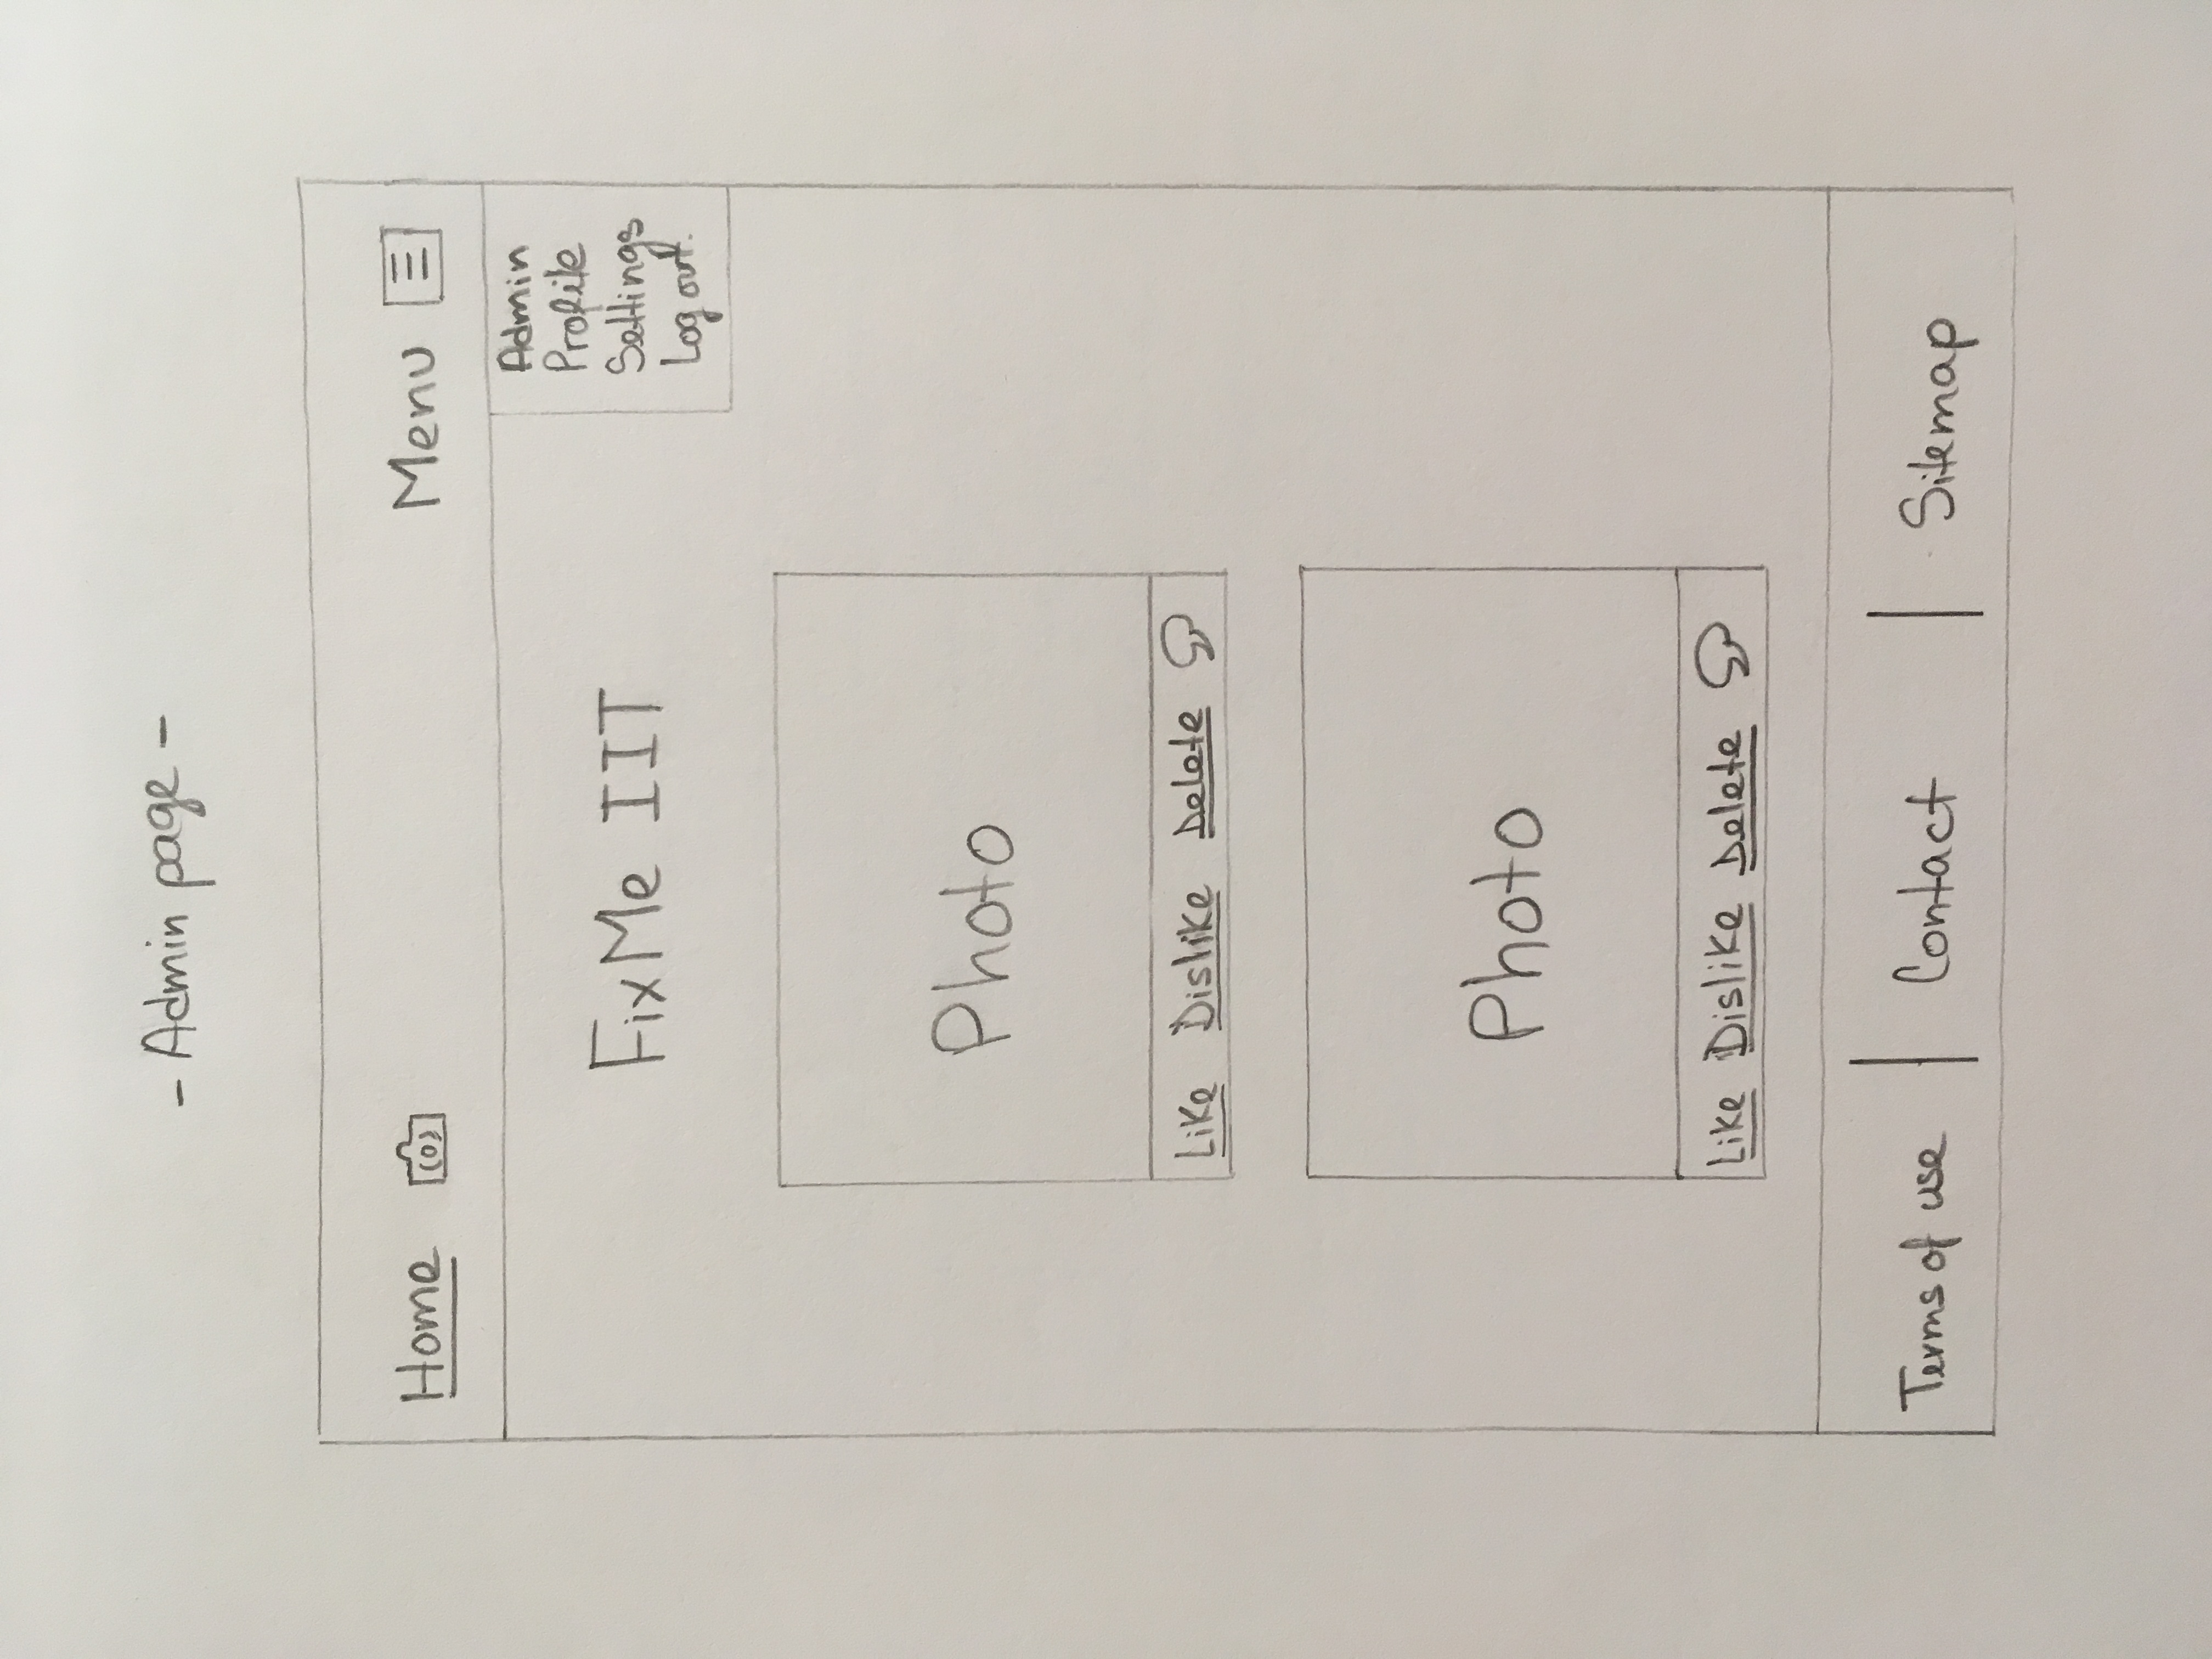 - Admin page -
Home Menu
Admin
Profile
Settings
Log out.
FixMe IIT
Photo
Like Dislike Delete
Photo
Like Dislike Delete
Terms of use | Contact | Sitemap